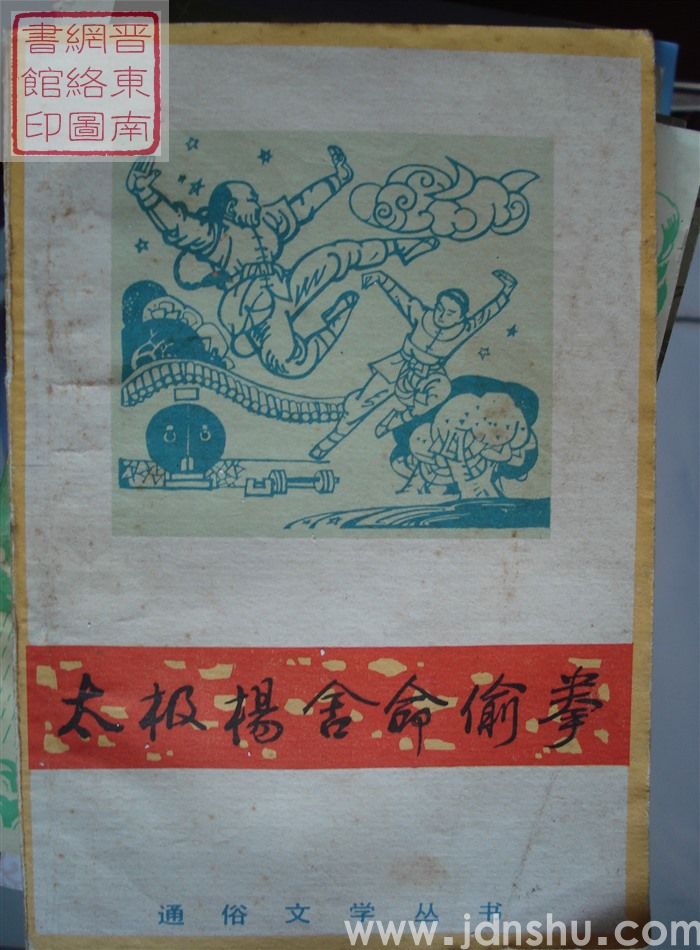 晋東南
網絡圖
書館印
太极楊舍命偷拳
通俗文学丛书
www.jdnshu.com